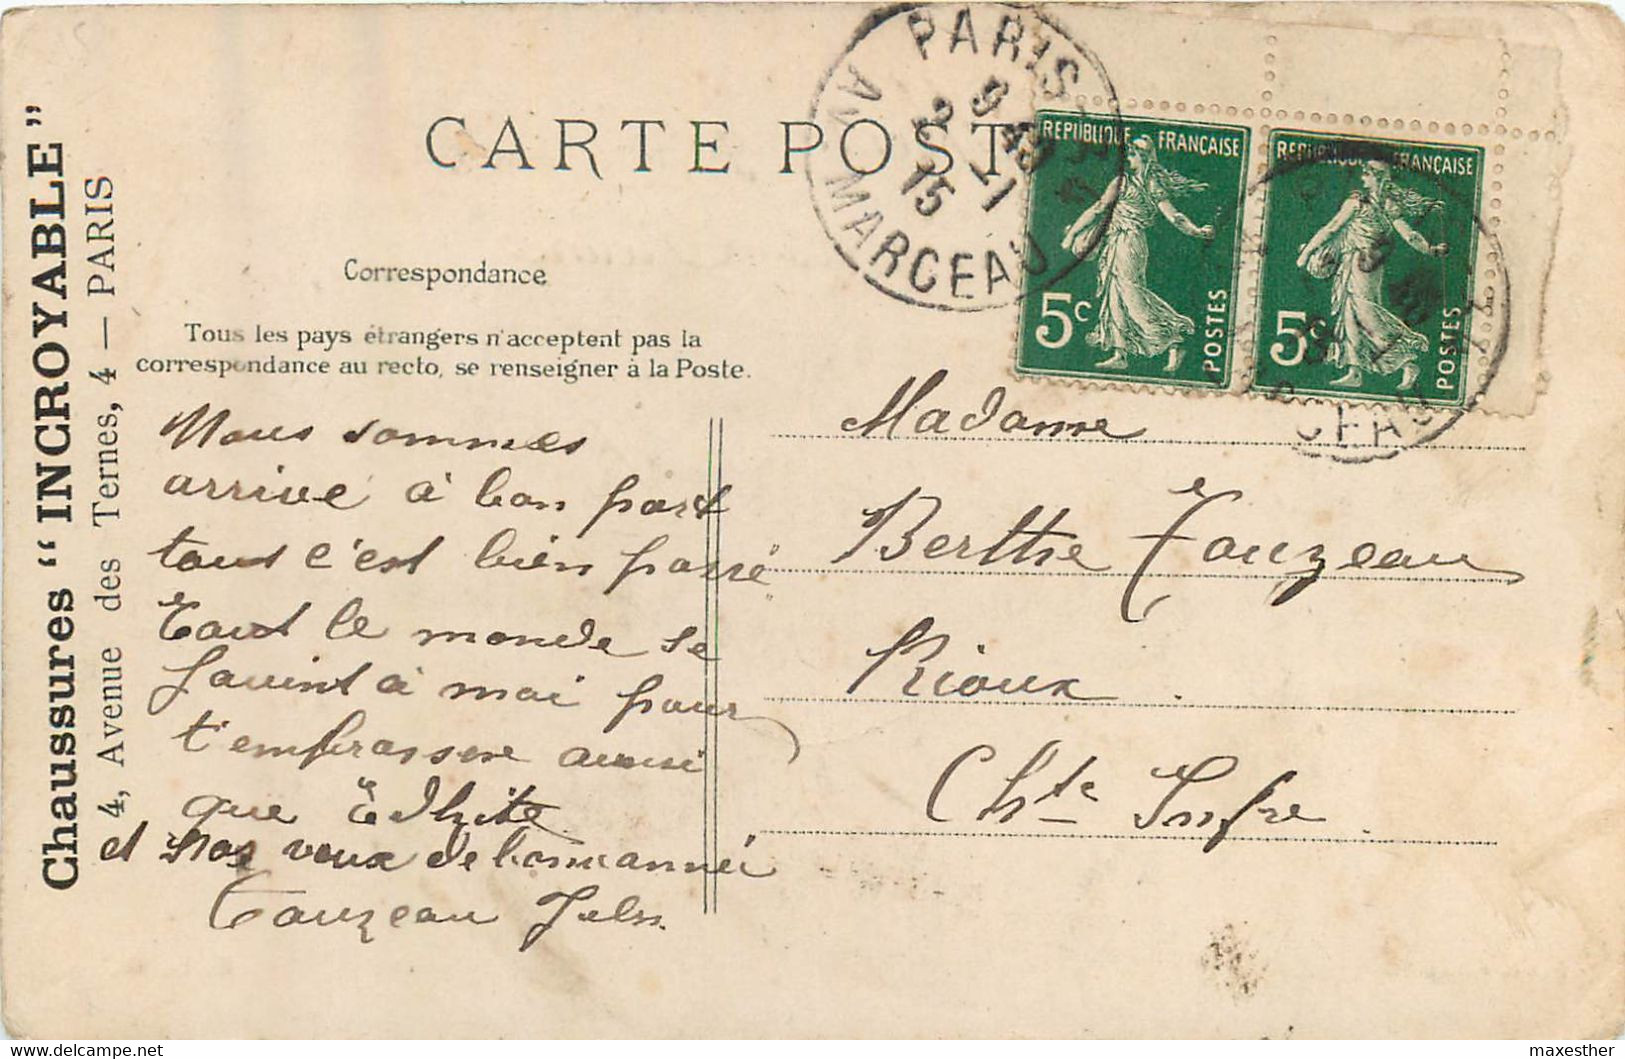 Chaussures “INCROYABLE”
4, Avenue des Ternes, 4 — PARIS
CARTE POST
Correspondance
Tous les pays étrangers n'acceptent pas la
correspondance au recto, se renseigner à la Poste.
PARIS
AV. MARCEAU
9 45
2 - 1
15
REPUBLIQUE FRANÇAISE
5c POSTES
REPUBLIQUE FRANÇAISE
5c POSTES
Nous sommes
arrive à bon port
tout c'est bien passé
Tout le monde se
Jouint à moi pour
t'embrasser aussi
que Edhite
et nos veux de bonne anné
Touzeau
Madame
Berthe Touzeau
Rioux
Chte Infre
Delcampe.net
maxesther